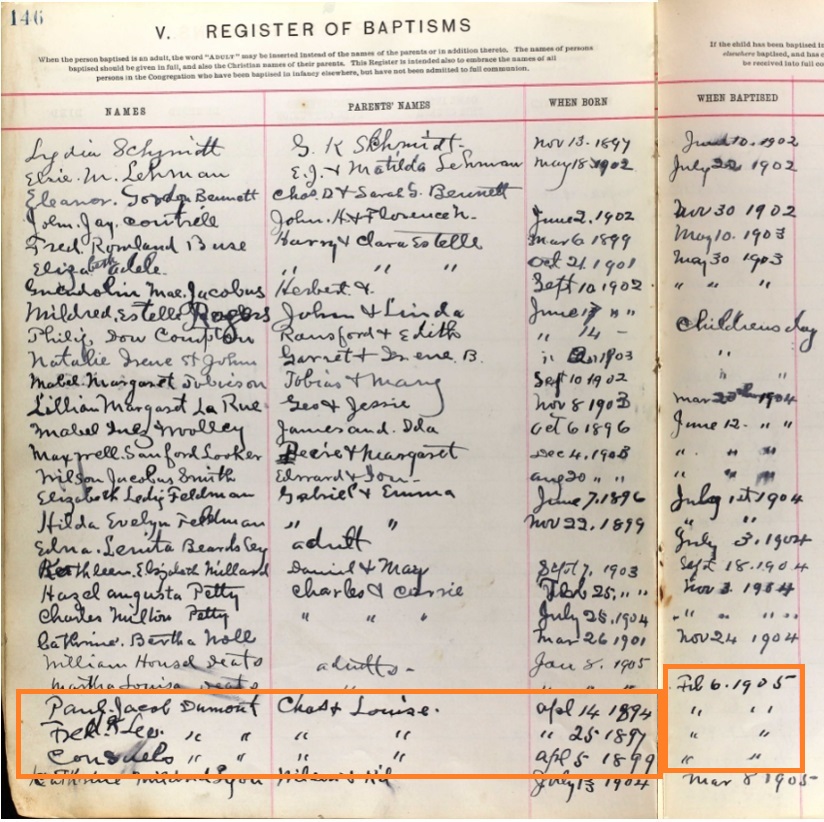 146
V. REGISTER OF BAPTISMS
When the person baptised is an adult, the word "ADULT" may be inserted instead of the names of the parents or in addition thereto. The names of persons
baptised should be given in full, and also the Christian names of their parents. This Register is intended also to embrace the names of all
persons in the Congregation who have been baptised in infancy elsewhere, but have not been admitted to full communion.
If the child has been baptised
elsewhere baptised, and has
be received into full
NAMES PARENTS' NAMES WHEN BORN WHEN BAPTISED
Lydia Schmidt G. K Schmidt Nov 13. 1897 June 10. 1902
Elsie. M. Lehman E. J. & Matilda Lehman May 18 1902 July 1902
Eleanor. Gordon Bennett Chas. D & Sarah G. Bennett
John. Jay. Cottrell John. H & Florence N. June 2. 1902 Nov 30 1902
Fred. Rowland Buse Harry & Clara Estelle Mar 6 1899 May 10. 1903
Elizabeth Adele. " " " Oct 21. 1901 May 30 1903
Gwendolin Mae. Jacobus Herbert &. Sept 10. 1902 " " "
Mildred. Estelle Rogers John & Linda June " "
Philip Dow Compton Ransford & Edith " 14 - Childrens day
Natalie Irene St John Garret & Irene B. " 1903 "
Mabel. Margaret Tobieson Tobias & Mary Sept 10 1902 " "
Lillian Margaret La Rue Geo & Jessie Nov 8 1903 Mar 1904
Mabel Inez Woolley James and. Ida Oct 6 1896 June 12 - " "
Maxwell. Sanford Looker & Margaret Dec 4. 1903 " " "
Wilson Jacobus Smith Edward & Aug 20 " " " " "
Elizabeth Feldman Gabriel & Emma June 7. 1896 July 1st 1904
Hilda Evelyn Feldman " " Nov 22. 1899 " "
Edna. Lenita Beardsley adult July 3. 1904
Kathleen. Elizabeth Millard Daniel & May Sept 7. 1903 Sept 18. 1904
Hazel Augusta Petty Charles & Carrie Feb 25. " " Nov 3 1904
Charles Milton Petty " " " July 25. 1904 " " " "
Cathrine. Bertha Noll Mar 26 1901 Nov 24 1904
William Housel Deats adults - Jan 8. 1905
Martha Louisa Deats " " " Feb 6. 1905
Paul. Jacob Dumont Chas & Louise. Apl 14 1894 " " "
Fred. & Leo. " " " " " 25 1897 " "
Consuelo " " " " Apl 5 1899 " "
Katherine Mildred Lyon Wilson & July 13 1904 Mar 8 1905